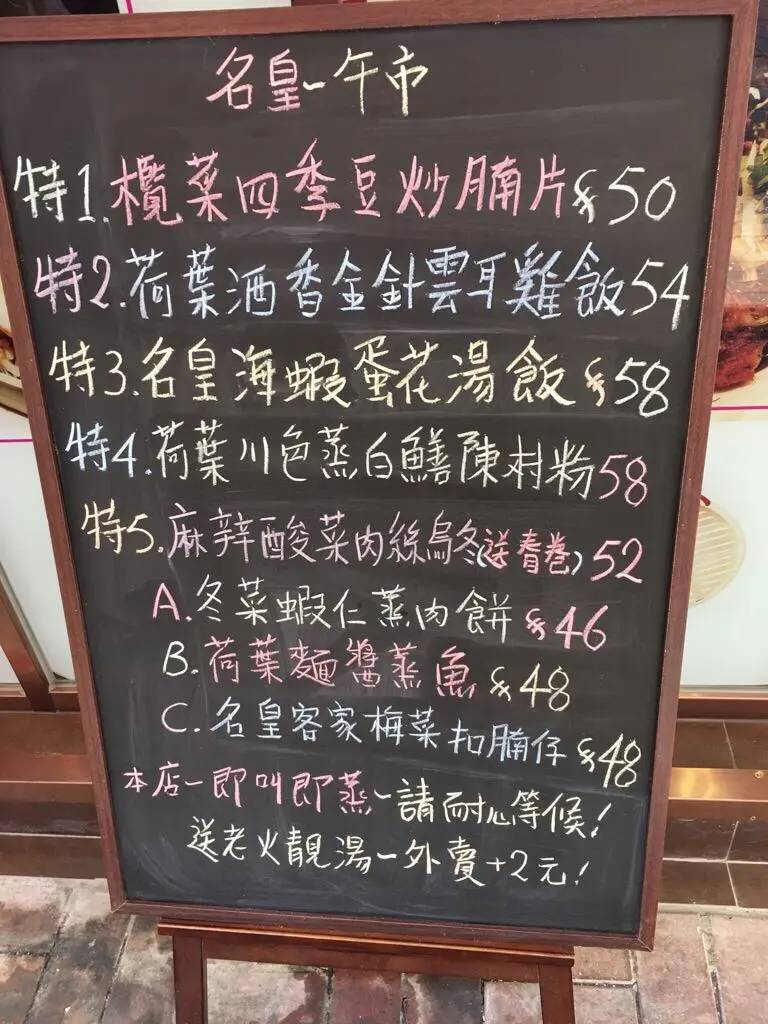 名皇~午市
特1.欖菜四季豆炒腩片$50
特2.荷葉酒香金針雲耳雞飯54
特3.名皇海蝦蛋花湯飯$58
特4.荷葉川色蒸白鱔陳村粉58
特5.麻辣酸菜肉絲烏冬(送春卷)52
A.冬菜蝦仁蒸肉餅$46
B.荷葉麵醬蒸魚$48
C.名皇客家梅菜扣腩仔$48
本店一即叫即蒸~請耐心等候!
送老火靚湯一外賣+2元!